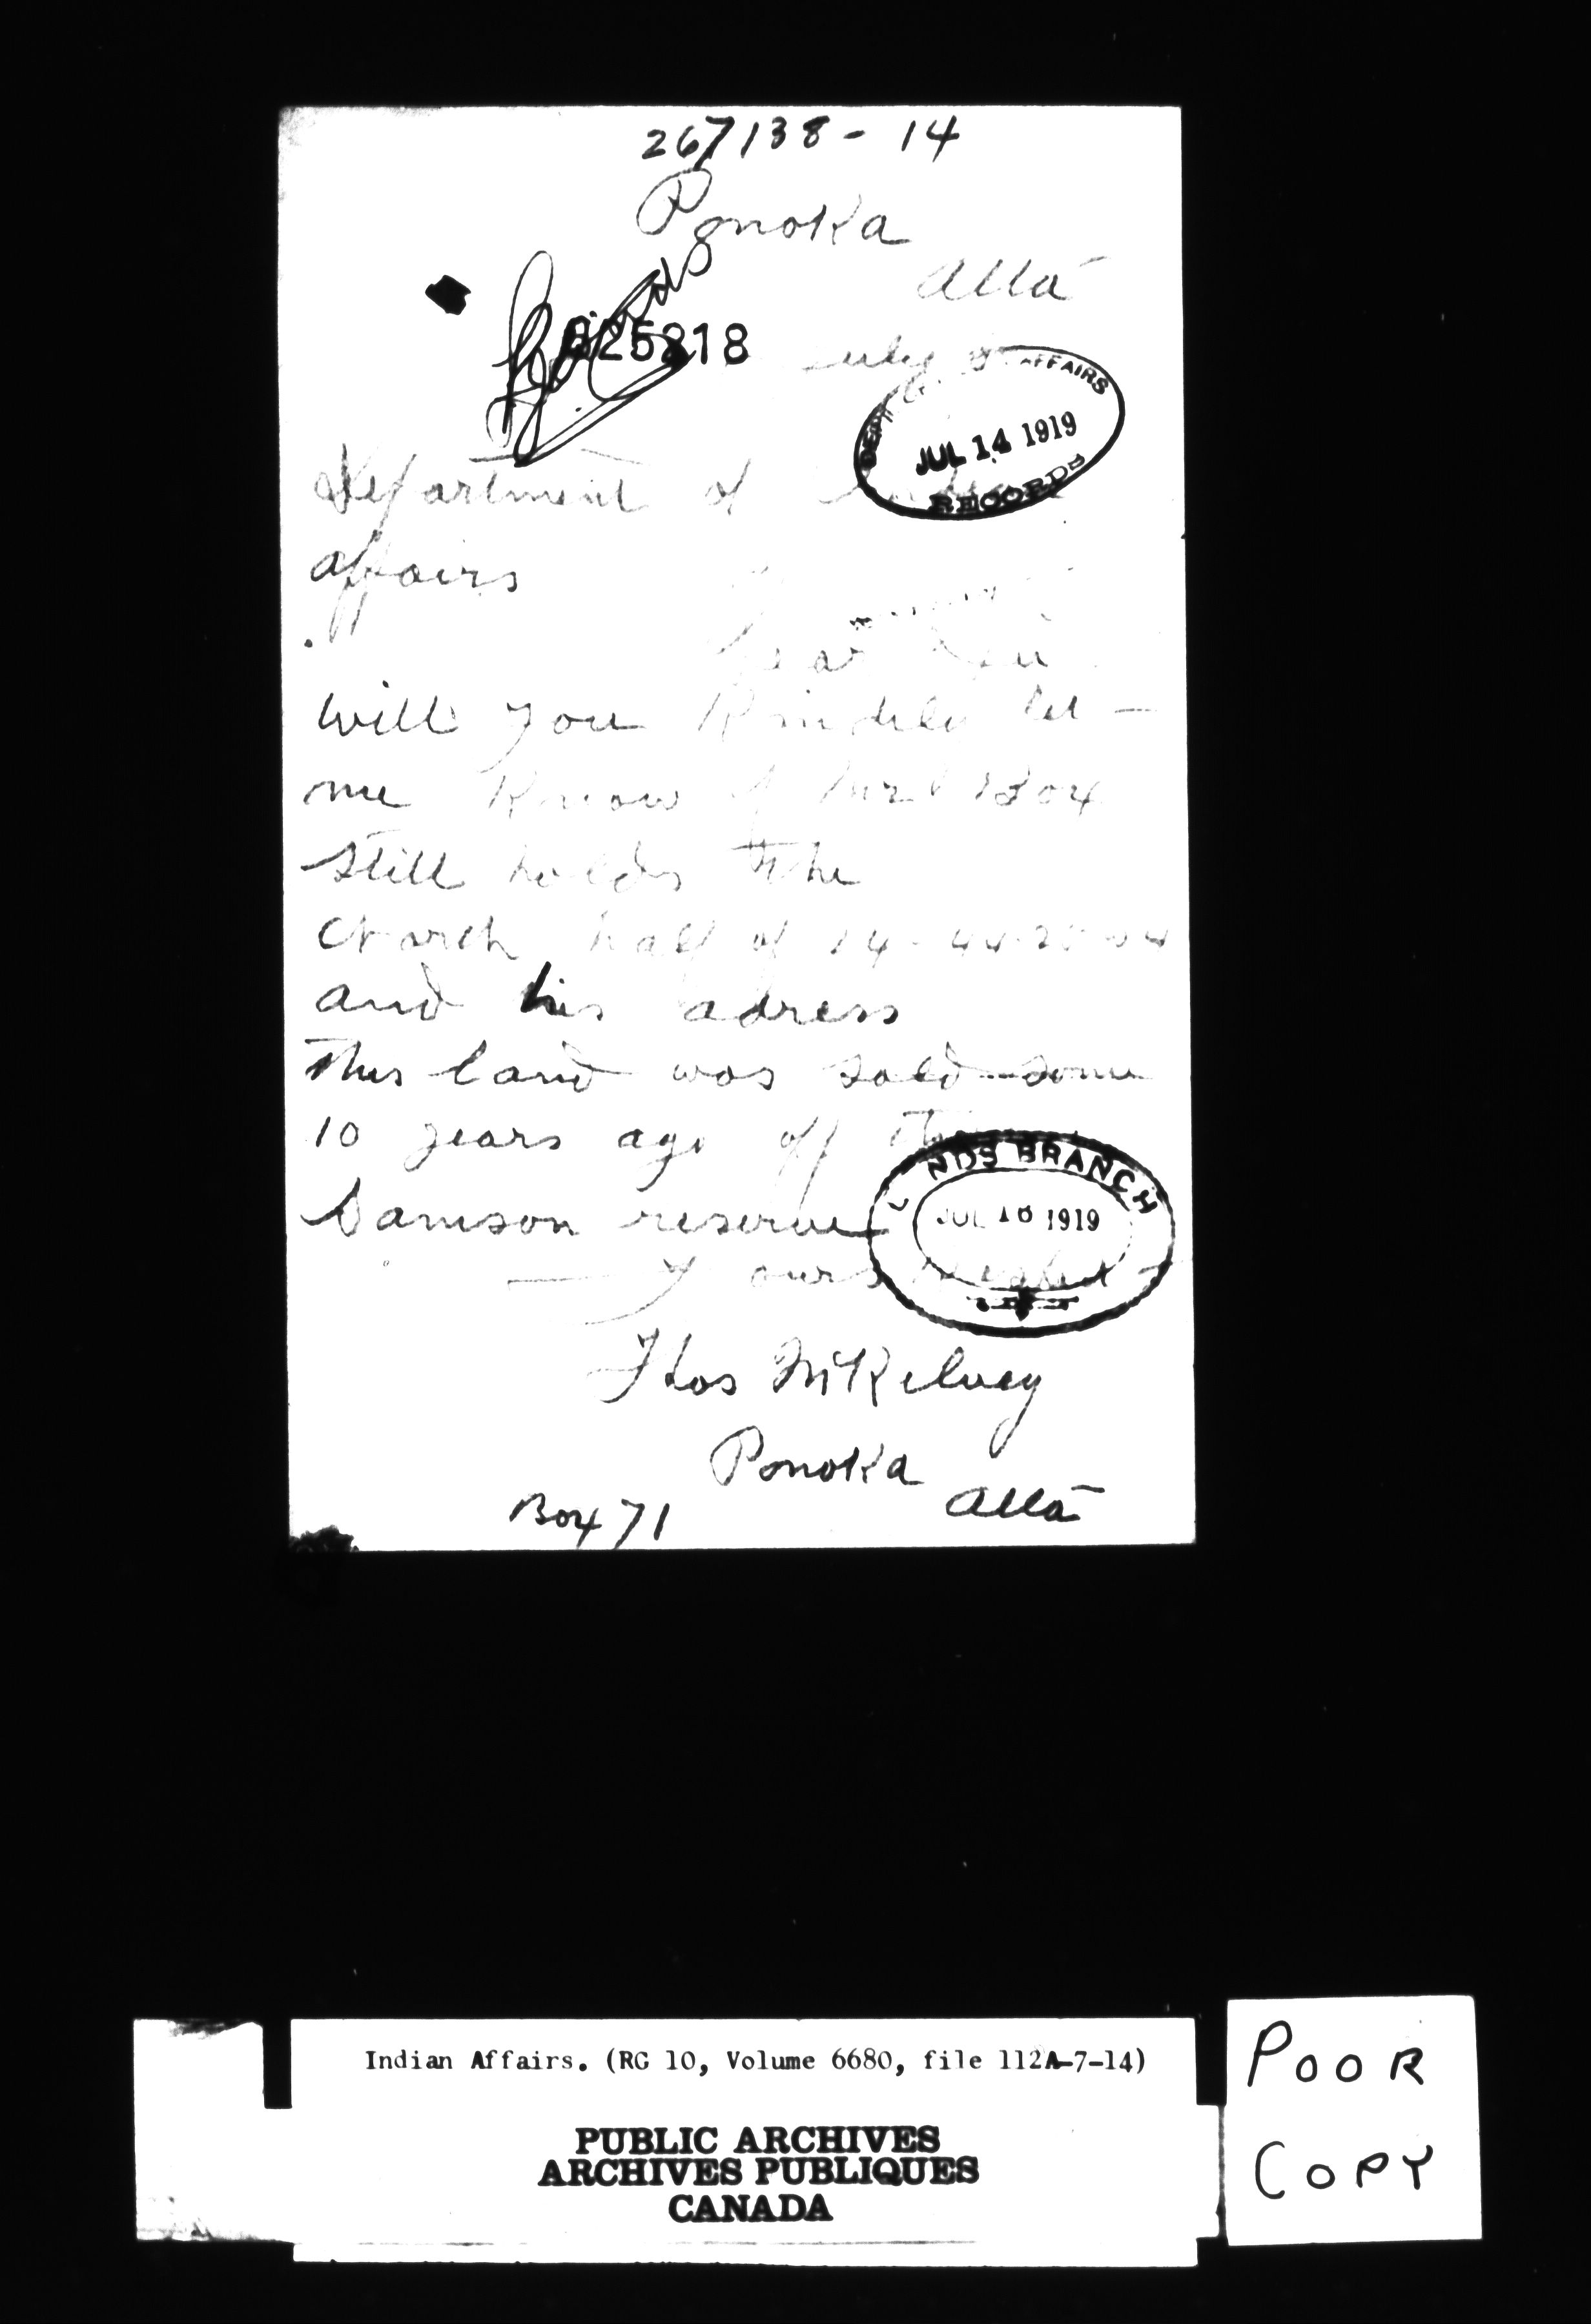 267138 - 14
Ponoka
Alta
525818
July
AFFAIRS
JUL 14 1919
RECORDS
Department of
affairs
Dear Sir
Will you Kindly let
me Know if Mr
still holds the
North half of 14-44-
and his adress
This land was sold some
10 years ago off the
Samson reserve
NDS BRANCH
JUL 16 1919
Yours
Thos McKelvey
Ponoka
Alta
Box 71
Indian Affairs. (RG 10, Volume 6680, file 112A-7-14)
PUBLIC ARCHIVES
ARCHIVES PUBLIQUES
CANADA
POOR
COPY